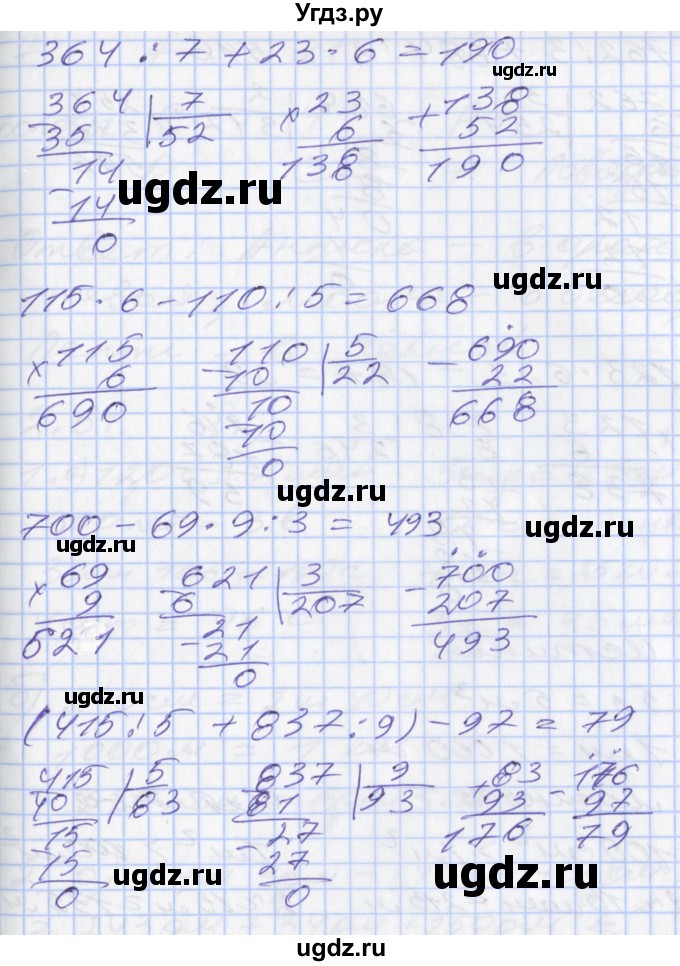 Угдз.ру
364 : 7 + 23 · 6 = 190
364 | 7    × 23    + 138
35    52    6    52
14    138    190
ugdz.ru
ugdz.ru
ugdz.ru
14
0
ugdz.ru
115 · 6 - 110 : 5 = 668
× 115    110 | 5    - 690
6    - 10    22    22
690    10    668
ugdz.ru
10
0
ugdz.ru
700 - 69 · 9 : 3 = 493
ugdz.ru
ugdz.ru
× 69    621 | 3    - 700
9    6    207    207
621    - 21    493
21
0
ugdz.ru
(415 : 5 + 837 : 9) - 97 = 79
415 | 5    837 | 9    + 83    - 176
40    83    81    93    93    97
15    - 27    176    79
- 15    27
0    0
ugdz.ru
ugdz.ru
ugdz.ru